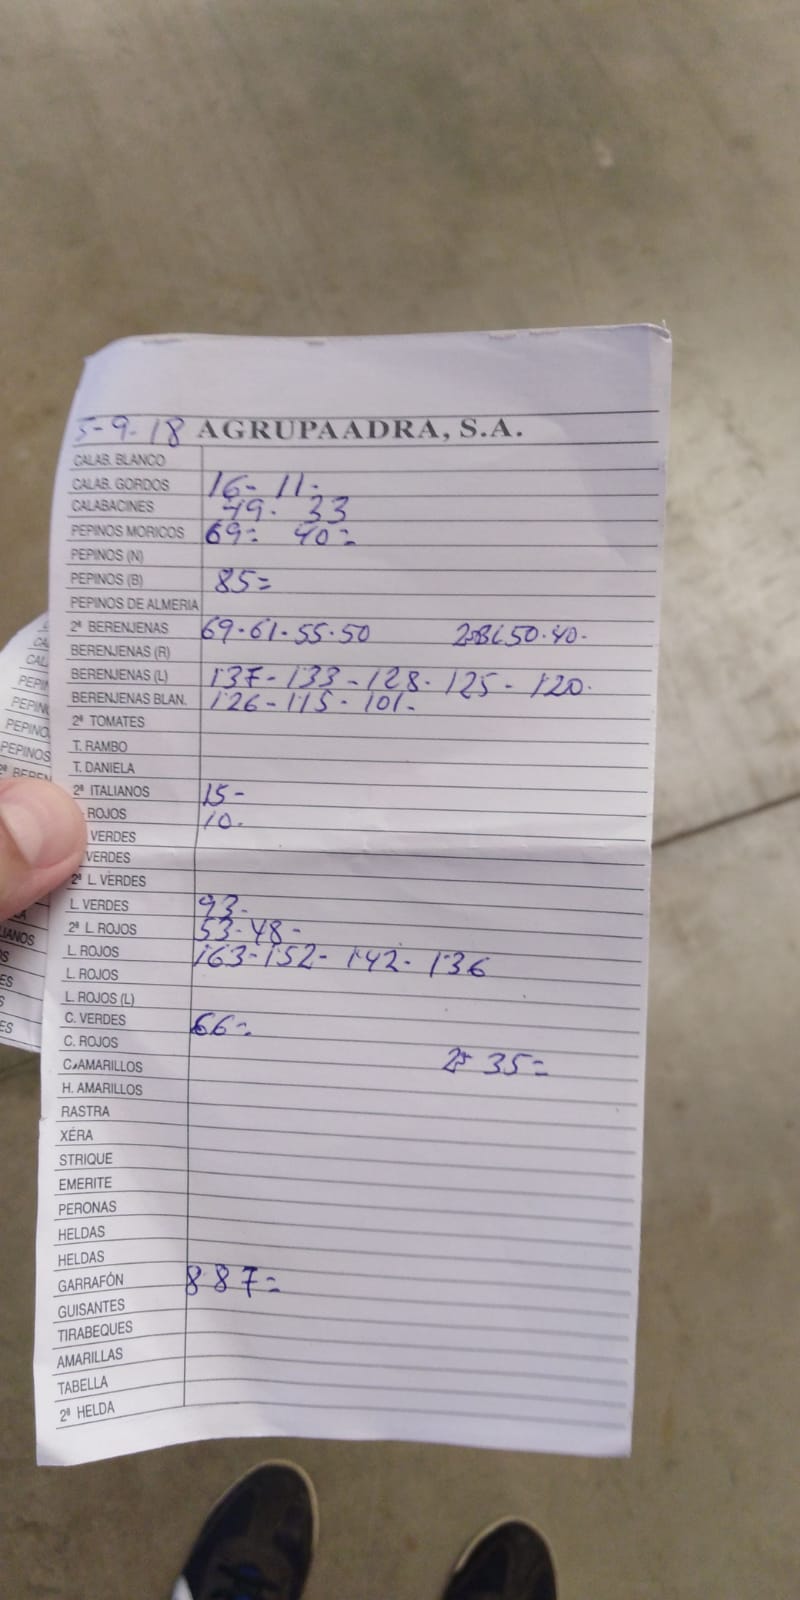 5-9-18 AGRUPAADRA, S.A.
CALAB. BLANCO
CALAB. GORDOS 16- 11-
CALABACINES 49. 33
PEPINOS MORICOS 69= 40=
PEPINOS (N)
PEPINOS (B) 85=
PEPINOS DE ALMERIA
2ª BERENJENAS 69-61-55-50 2ªBL50-40-
BERENJENAS (R)
BERENJENAS (L) 137-133-128-125-120.
BERENJENAS BLAN. 126-115-101-
2ª TOMATES
T. RAMBO
T. DANIELA
2ª ITALIANOS 15-
ROJOS 10-
VERDES
VERDES
2ª L. VERDES
L. VERDES 93-
2ª L. ROJOS 53-48-
L. ROJOS 163-152-142-136
L. ROJOS
L. ROJOS (L)
C. VERDES 66=
C. ROJOS
C. AMARILLOS 2ª 35=
H. AMARILLOS
RASTRA
XÉRA
STRIQUE
EMERITE
PERONAS
HELDAS
HELDAS
GARRAFÓN 887=
GUISANTES
TIRABEQUES
AMARILLAS
TABELLA
2ª HELDA